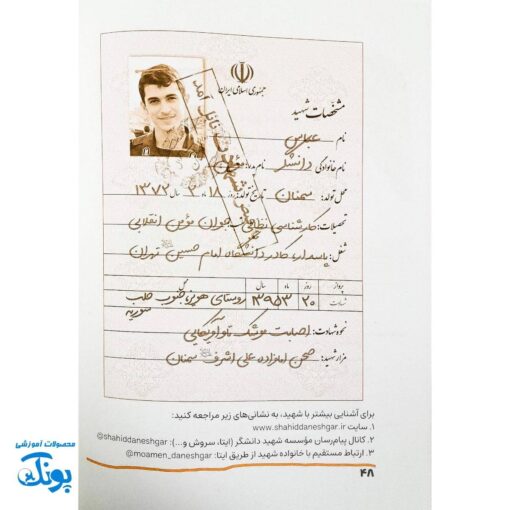 جمهوری اسلامی ایران
مشخصات شهید
نام عباس
نام خانوادگی دانشگر نام پدر
محل تولد: سمنان تاریخ تولد: روز ۱۸ ماه ۲ سال ۱۳۷۲
تحصیلات: کارشناسی نظامی جوان مؤمن انقلابی
شغل: پاسدار، کادر دانشگاه امام حسین تهران
پرواز روز ماه سال
شهادت ۲۰ ۳ ۱۳۹۵ روستای هویز، جنوب حلب
سوریه
نحوه شهادت: اصابت موشک تاو آمریکایی
مزار شهید: صحن امامزاده علی اشرف سمنان
برای آشنایی بیشتر با شهید، به نشانی‌های زیر مراجعه کنید:
۱. سایت www.shahiddaneshgar.ir
۲. کانال پیام‌رسان مؤسسه شهید دانشگر (ایتا، سروش و...): @shahiddaneshgar
۳. ارتباط مستقیم با خانواده شهید از طریق ایتا: @moamen_daneshgar
۴۸
محصولات آموزشی
پونک